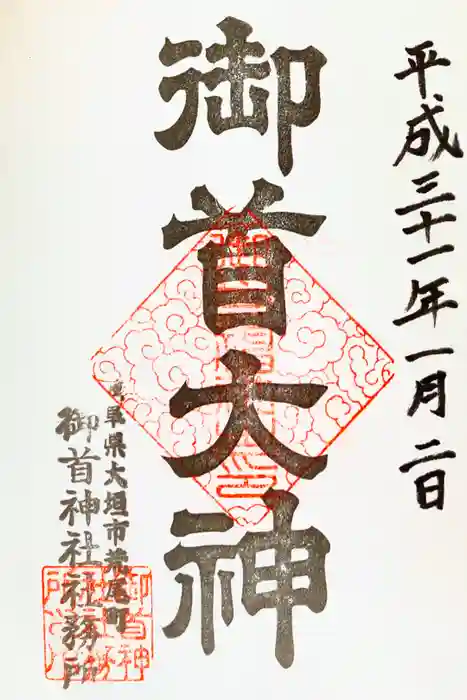 平成三十一年一月二日
御首大神
岐阜県大垣市荒尾町
御首神社社務所